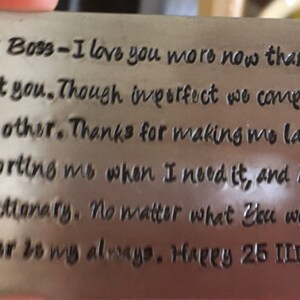 Boss - I love you more now than
you. Though imperfect we comp
other. Thanks for making me la
orting me when I need it, and
ctionary. No matter what You w
be my always. Happy 25 III